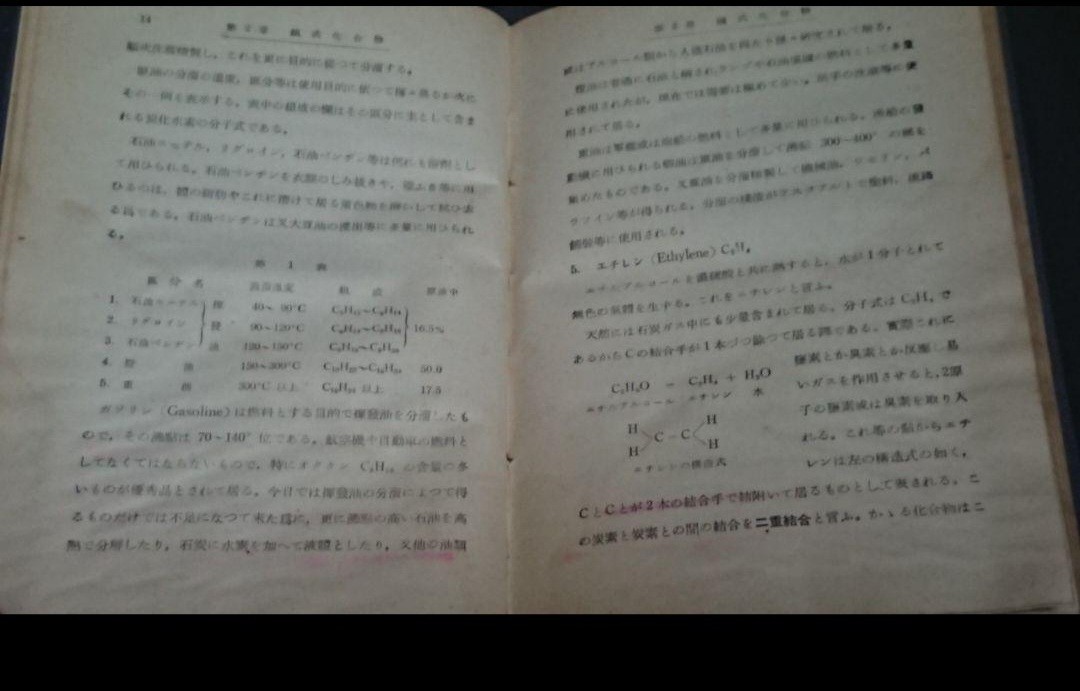 14
第2章 鎖式化合物
原油の分溜の温度,區分等は使用目的に依つて種々異るが次に
その一例を表示する。表中の組成の欄はその區分に主として含ま
れる炭化水素の分子式である。
石油エーテル,リグロイン,石油ベンヂン等は何れも溶劑とし
て用ひられる。石油ベンヂンを衣類のしみ抜きや,
る爲である。石油ベンヂンは又大豆油の浸出等に多量に用ひられ
る。
第 1 表
區分名 溜出温度 組成 原油中
1. 石油エーテル 揮 40~
2. リグロイン 發 90~120°C 16.5%
3. 石油ベンヂン 油 120~150°C
4. 燈油 150~300°C 50.0
5. 重油 300°C 以上 以上 17.5
ガソリン (Gasoline) は燃料とする目的で揮發油を分溜したも
ので,その沸點は 70~140° 位である。航空機や自動車の燃料と
してなくてはならないもので,特にオクタン の含量の多
いものが優秀品とされて居る。今日では揮發油の分溜によつて得
るものだけでは不足になつて來た爲に,更に沸點の高い石油を高
熱で分解したり,石炭に水素を加へて液體としたり,又他の油類
第2章 鎖式化合物
或はアルコール類から人造石油を
燈油は普通に石油と稱されランプや石油
に使用されたが,現在では需要は極めて少い。
用されて居る。
重油は軍艦或は汽船の燃料として多量に用ひられる。
300~400° の
集めたものである。又重油を分溜精製して機械油,ワセリン,
ラフイン等が得られる。分溜の殘渣がアスフアルトで塗料,道路
鋪裝等に使用される。
5. エチレン (Ethylene) C₂H₄
エチルアルコールを濃硫酸と共に熱すると,水が1分子とれて
無色の氣體を生ずる。これをエチレンと言ふ。
天然には石炭ガス中にも少量含まれて居る。分子式は C₂H₄ で
あるからCの結合手が1本づつ餘つて居る譯である。實際これに
C₂H₆O = C₂H₄ + H₂O
エチルアルコール エチレン 水
鹽素とか臭素とか反應し易
いガスを作用させると,2原
子の鹽素或は臭素を取り入
れる。これ等の點からエチ
レンは左の構造式の如く,
H H
C - C
H H
エチレンの構造式
CとCとが2本の結合手で結附いて居るものとして表される。こ
の炭素と炭素との間の結合を二重結合と言ふ。かゝる化合物はこ